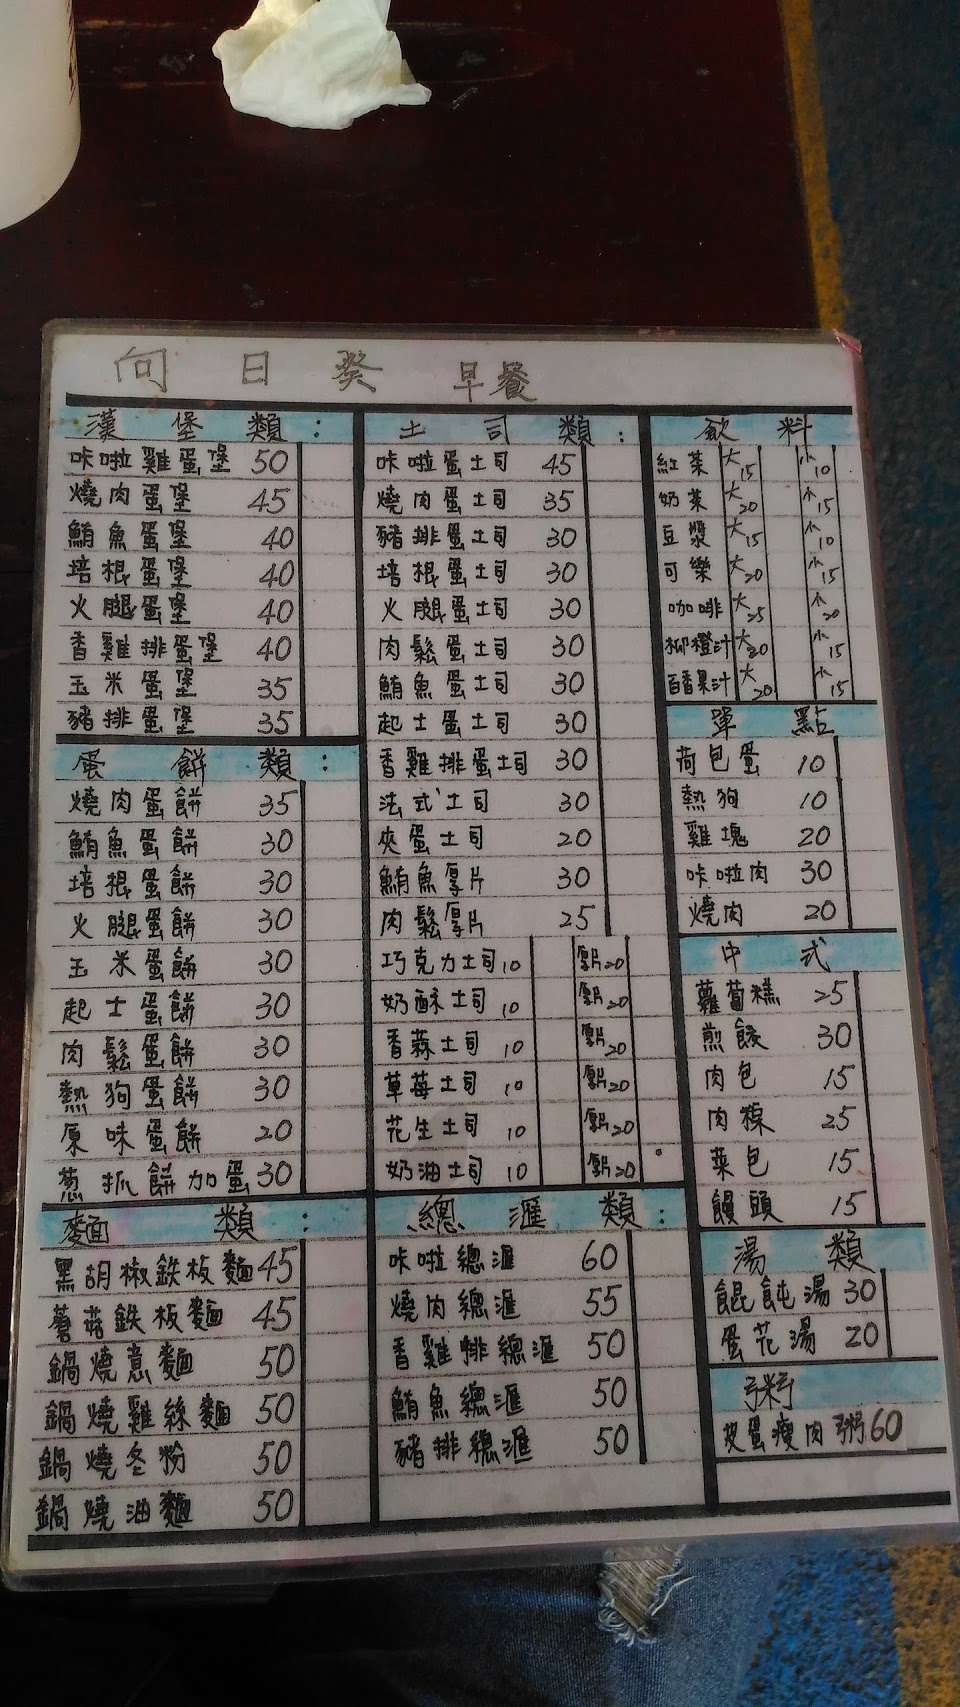 向日葵 早餐
漢堡類：
咔啦雞蛋堡 50
燒肉蛋堡 45
鮪魚蛋堡 40
培根蛋堡 40
火腿蛋堡 40
香雞排蛋堡 40
玉米蛋堡 35
豬排蛋堡 35
蛋餅類：
燒肉蛋餅 35
鮪魚蛋餅 30
培根蛋餅 30
火腿蛋餅 30
玉米蛋餅 30
起士蛋餅 30
肉鬆蛋餅 30
熱狗蛋餅 30
原味蛋餅 20
葱抓餅加蛋 30
麵類：
黑胡椒鉄板麵 45
蘑菇鉄板麵 45
鍋燒意麵 50
鍋燒雞絲麵 50
鍋燒冬粉 50
鍋燒油麵 50
土司類：
咔啦蛋土司 45
燒肉蛋土司 35
豬排蛋土司 30
培根蛋土司 30
火腿蛋土司 30
肉鬆蛋土司 30
鮪魚蛋土司 30
起士蛋土司 30
香雞排蛋土司 30
法式土司 30
夾蛋土司 20
鮪魚厚片 30
肉鬆厚片 25
巧克力土司 10 厚片 20
奶酥土司 10 厚片 20
香蒜土司 10 厚片 20
草莓土司 10 厚片 20
花生土司 10 厚片 20
奶油土司 10 厚片 20
總滙類：
咔啦總滙 60
燒肉總滙 55
香雞排總滙 50
鮪魚總滙 50
豬排總滙 50
飲料
紅茶 大15 小10
奶茶 大20 小15
豆漿 大15 小10
可樂 大20 小15
咖啡 大25 小20
柳橙汁 大20 小15
百香果汁 大20 小15
單點
荷包蛋 10
熱狗 10
雞塊 20
咔啦肉 30
燒肉 20
中式
蘿蔔糕 25
煎餃 30
肉包 15
肉粽 25
菜包 15
饅頭 15
湯類
餛飩湯 30
蛋花湯 20
粥
皮蛋瘦肉粥 60